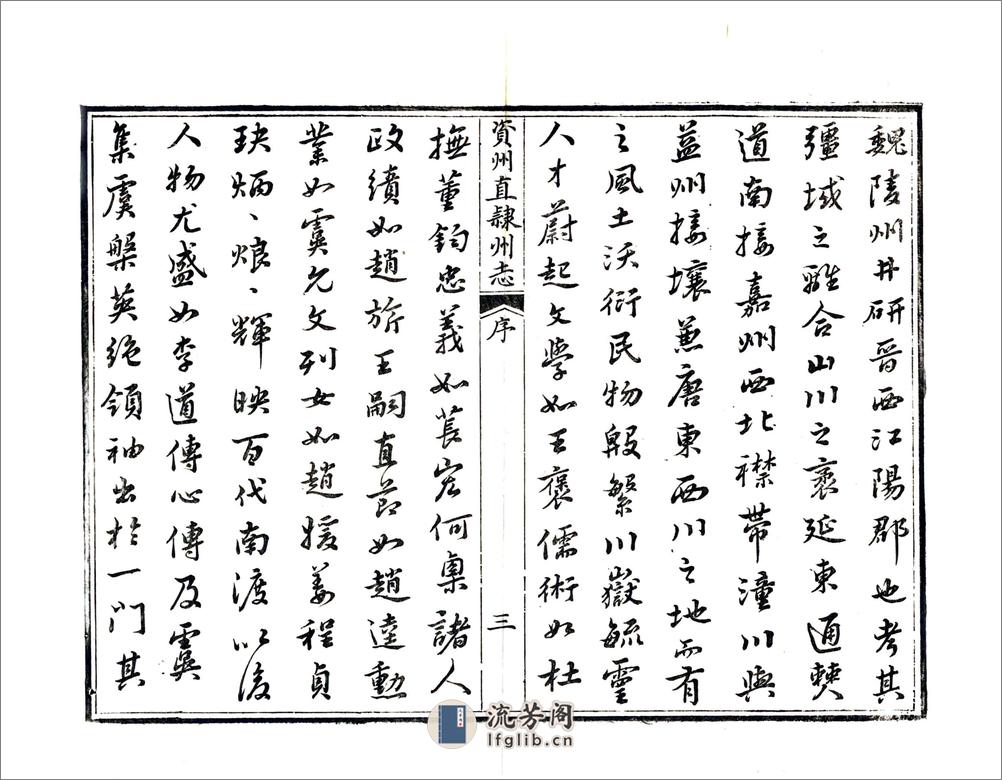 魏陵州井研晋西江陽郡也考其
疆域之離合山川之袤延東通僰
道南接嘉州西北襟帶潼川與
益州接壤蓋唐東西川之地而有
之風土沃衍民物殷繁川嶽毓靈
人才蔚起文學如王褒儒術如杜
資州直隸州志
序
三
撫董鈞忠義如萇宏何㮚諸人
政績如趙旂王嗣直節如趙逵勳
業如虞允文列女如趙媛姜程貞
玦炳、烺、輝映百代南渡以後
人物尤盛如李道傳心傳及虞
集虞槃英絕領袖出於一門其
流芳阁
lfglib.cn